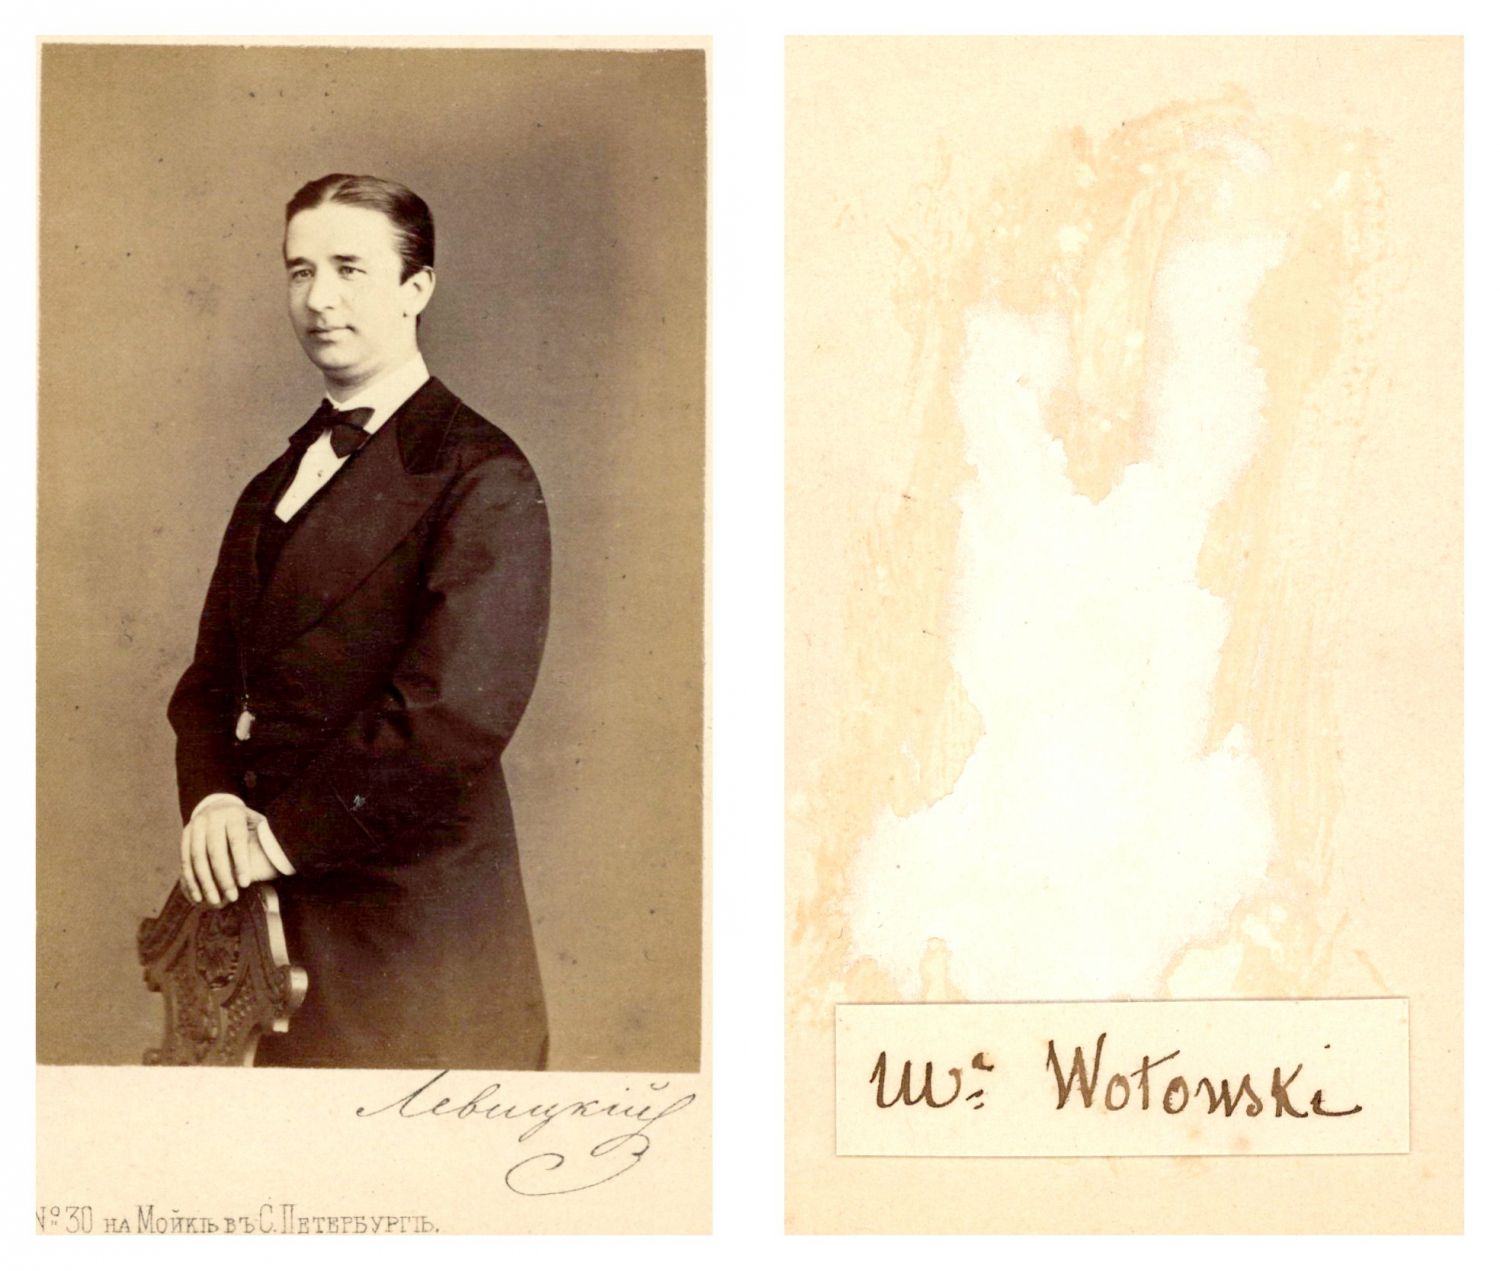 Левицкiй
№30 на Мойкѣ въ С. Петербургѣ.
Mr Wołowski